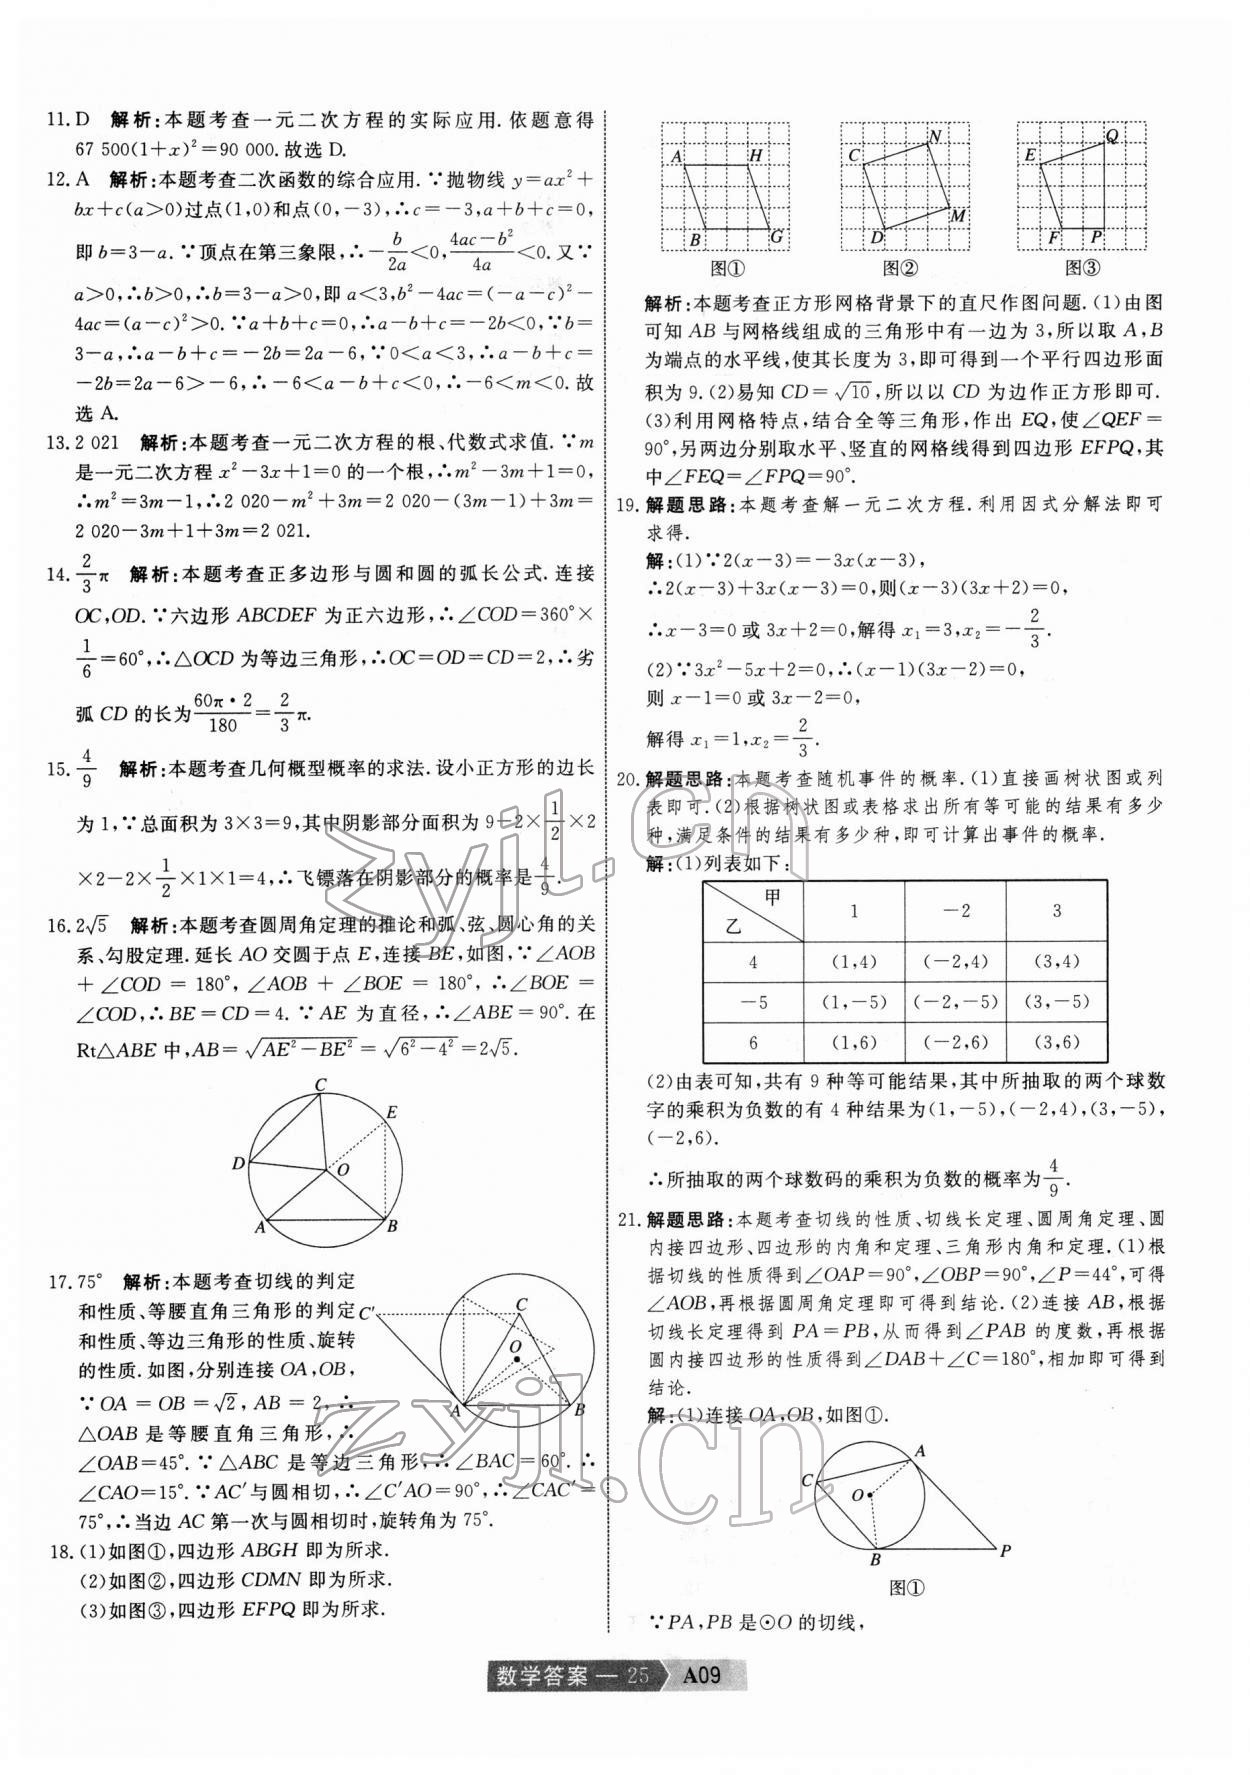 11.D 解析:本题考查一元二次方程的实际应用.依题意得
67 500(1+x)²=90 000.故选 D.
12.A 解析:本题考查二次函数的综合应用.∵抛物线 y=ax²+
bx+c(a>0)过点(1,0)和点(0,-3),∴c=-3,a+b+c=0,
即 b=3-a.∵顶点在第三象限,∴-b/2a<0,(4ac-b²)/4a<0.又∵
a>0,∴b>0,∴b=3-a>0,即 a<3,b²-4ac=(-a-c)²-
4ac=(a-c)²>0.∵a+b+c=0,∴a-b+c=-2b<0,∵b=
3-a,∴a-b+c=-2b=2a-6,∵0<a<3,∴a-b+c=
-2b=2a-6>-6,∴-6<a-b+c<0,∴-6<m<0.故
选 A.
13.2 021 解析:本题考查一元二次方程的根、代数式求值.∵m
是一元二次方程 x²-3x+1=0 的一个根,∴m²-3m+1=0,
∴m²=3m-1,∴2 020-m²+3m=2 020-(3m-1)+3m=
2 020-3m+1+3m=2 021.
14. 2/3 π 解析:本题考查正多边形与圆和圆的弧长公式.连接
OC,OD.∵六边形 ABCDEF 为正六边形,∴∠COD=360°×
1/6=60°,∴△OCD 为等边三角形,∴OC=OD=CD=2,∴劣
弧 CD 的长为 60π·2/180=2/3 π.
15. 4/9 解析:本题考查几何概型概率的求法.设小正方形的边长
为 1,∵总面积为 3×3=9,其中阴影部分面积为 9-2×1/2×2
×2-2×1/2×1×1=4,∴飞镖落在阴影部分的概率是 4/9.
16.2√5 解析:本题考查圆周角定理的推论和弧、弦、圆心角的关
系、勾股定理.延长 AO 交圆于点 E,连接 BE,如图,∵∠AOB
+∠COD=180°,∠AOB+∠BOE=180°,∴∠BOE=
∠COD,∴BE=CD=4.∵AE 为直径,∴∠ABE=90°.在
Rt△ABE 中,AB=√(AE²-BE²)=√(6²-4²)=2√5.
C
E
D
O
A
B
17.75° 解析:本题考查切线的判定
和性质、等腰直角三角形的判定
和性质、等边三角形的性质、旋转
的性质.如图,分别连接 OA,OB,
∵OA=OB=√2,AB=2,∴
△OAB 是等腰直角三角形,∴
∠OAB=45°.∵△ABC 是等边三角形,∴∠BAC=60°.∴
∠CAO=15°.∵AC′与圆相切,∴∠C′AO=90°,∴∠CAC′=
75°,∴当边 AC 第一次与圆相切时,旋转角为 75°.
C′
C
O
A
B
18.(1)如图①,四边形 ABGH 即为所求.
(2)如图②,四边形 CDMN 即为所求.
(3)如图③,四边形 EFPQ 即为所求.
A H
B G
图①
N
C
M
D
图②
Q
E
F P
图③
解析:本题考查正方形网格背景下的直尺作图问题.(1)由图
可知 AB 与网格线组成的三角形中有一边为 3,所以取 A,B
为端点的水平线,使其长度为 3,即可得到一个平行四边形面
积为 9.(2)易知 CD=√10,所以以 CD 为边作正方形即可.
(3)利用网格特点,结合全等三角形,作出 EQ,使∠QEF=
90°,另两边分别取水平、竖直的网格线得到四边形 EFPQ,其
中∠FEQ=∠FPQ=90°.
19.解题思路:本题考查解一元二次方程.利用因式分解法即可
求得.
解:(1)∵2(x-3)=-3x(x-3),
∴2(x-3)+3x(x-3)=0,则(x-3)(3x+2)=0,
∴x-3=0 或 3x+2=0,解得 x₁=3,x₂=-2/3.
(2)∵3x²-5x+2=0,∴(x-1)(3x-2)=0,
则 x-1=0 或 3x-2=0,
解得 x₁=1,x₂=2/3.
20.解题思路:本题考查随机事件的概率.(1)直接画树状图或列
表即可.(2)根据树状图或表格求出所有等可能的结果有多少
种,满足条件的结果有多少种,即可计算出事件的概率.
解:(1)列表如下:
甲 乙 1 -2 3
4 (1,4) (-2,4) (3,4)
-5 (1,-5) (-2,-5) (3,-5)
6 (1,6) (-2,6) (3,6)
(2)由表可知,共有 9 种等可能结果,其中所抽取的两个球数
字的乘积为负数的有 4 种结果为(1,-5),(-2,4),(3,-5),
(-2,6).
∴所抽取的两个球数码的乘积为负数的概率为 4/9.
21.解题思路:本题考查切线的性质、切线长定理、圆周角定理、圆
内接四边形、四边形的内角和定理、三角形内角和定理.(1)根
据切线的性质得到∠OAP=90°,∠OBP=90°,∠P=44°,可得
∠AOB,再根据圆周角定理即可得到结论.(2)连接 AB,根据
切线长定理得到 PA=PB,从而得到∠PAB 的度数,再根据
圆内接四边形的性质得到∠DAB+∠C=180°,相加即可得到
结论.
解:(1)连接 OA,OB,如图①.
A
C
O
B
P
图①
∵PA,PB 是⊙O 的切线,
数学答案 — 25 A09
zyjl.cn
zyjl.cn